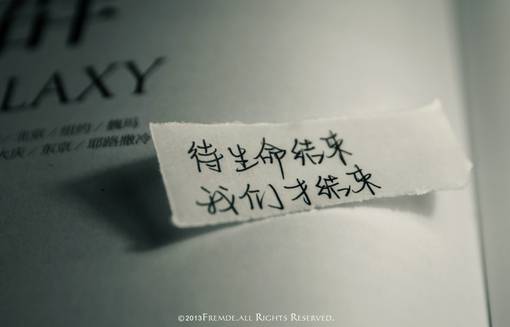 LAXY
/ 北京 / 纽约 / 魏玛
大庆 / 东京 / 耶路撒冷
待生命结束
我们才结束
©2013FREMDE.ALL RIGHTS RESERVED.